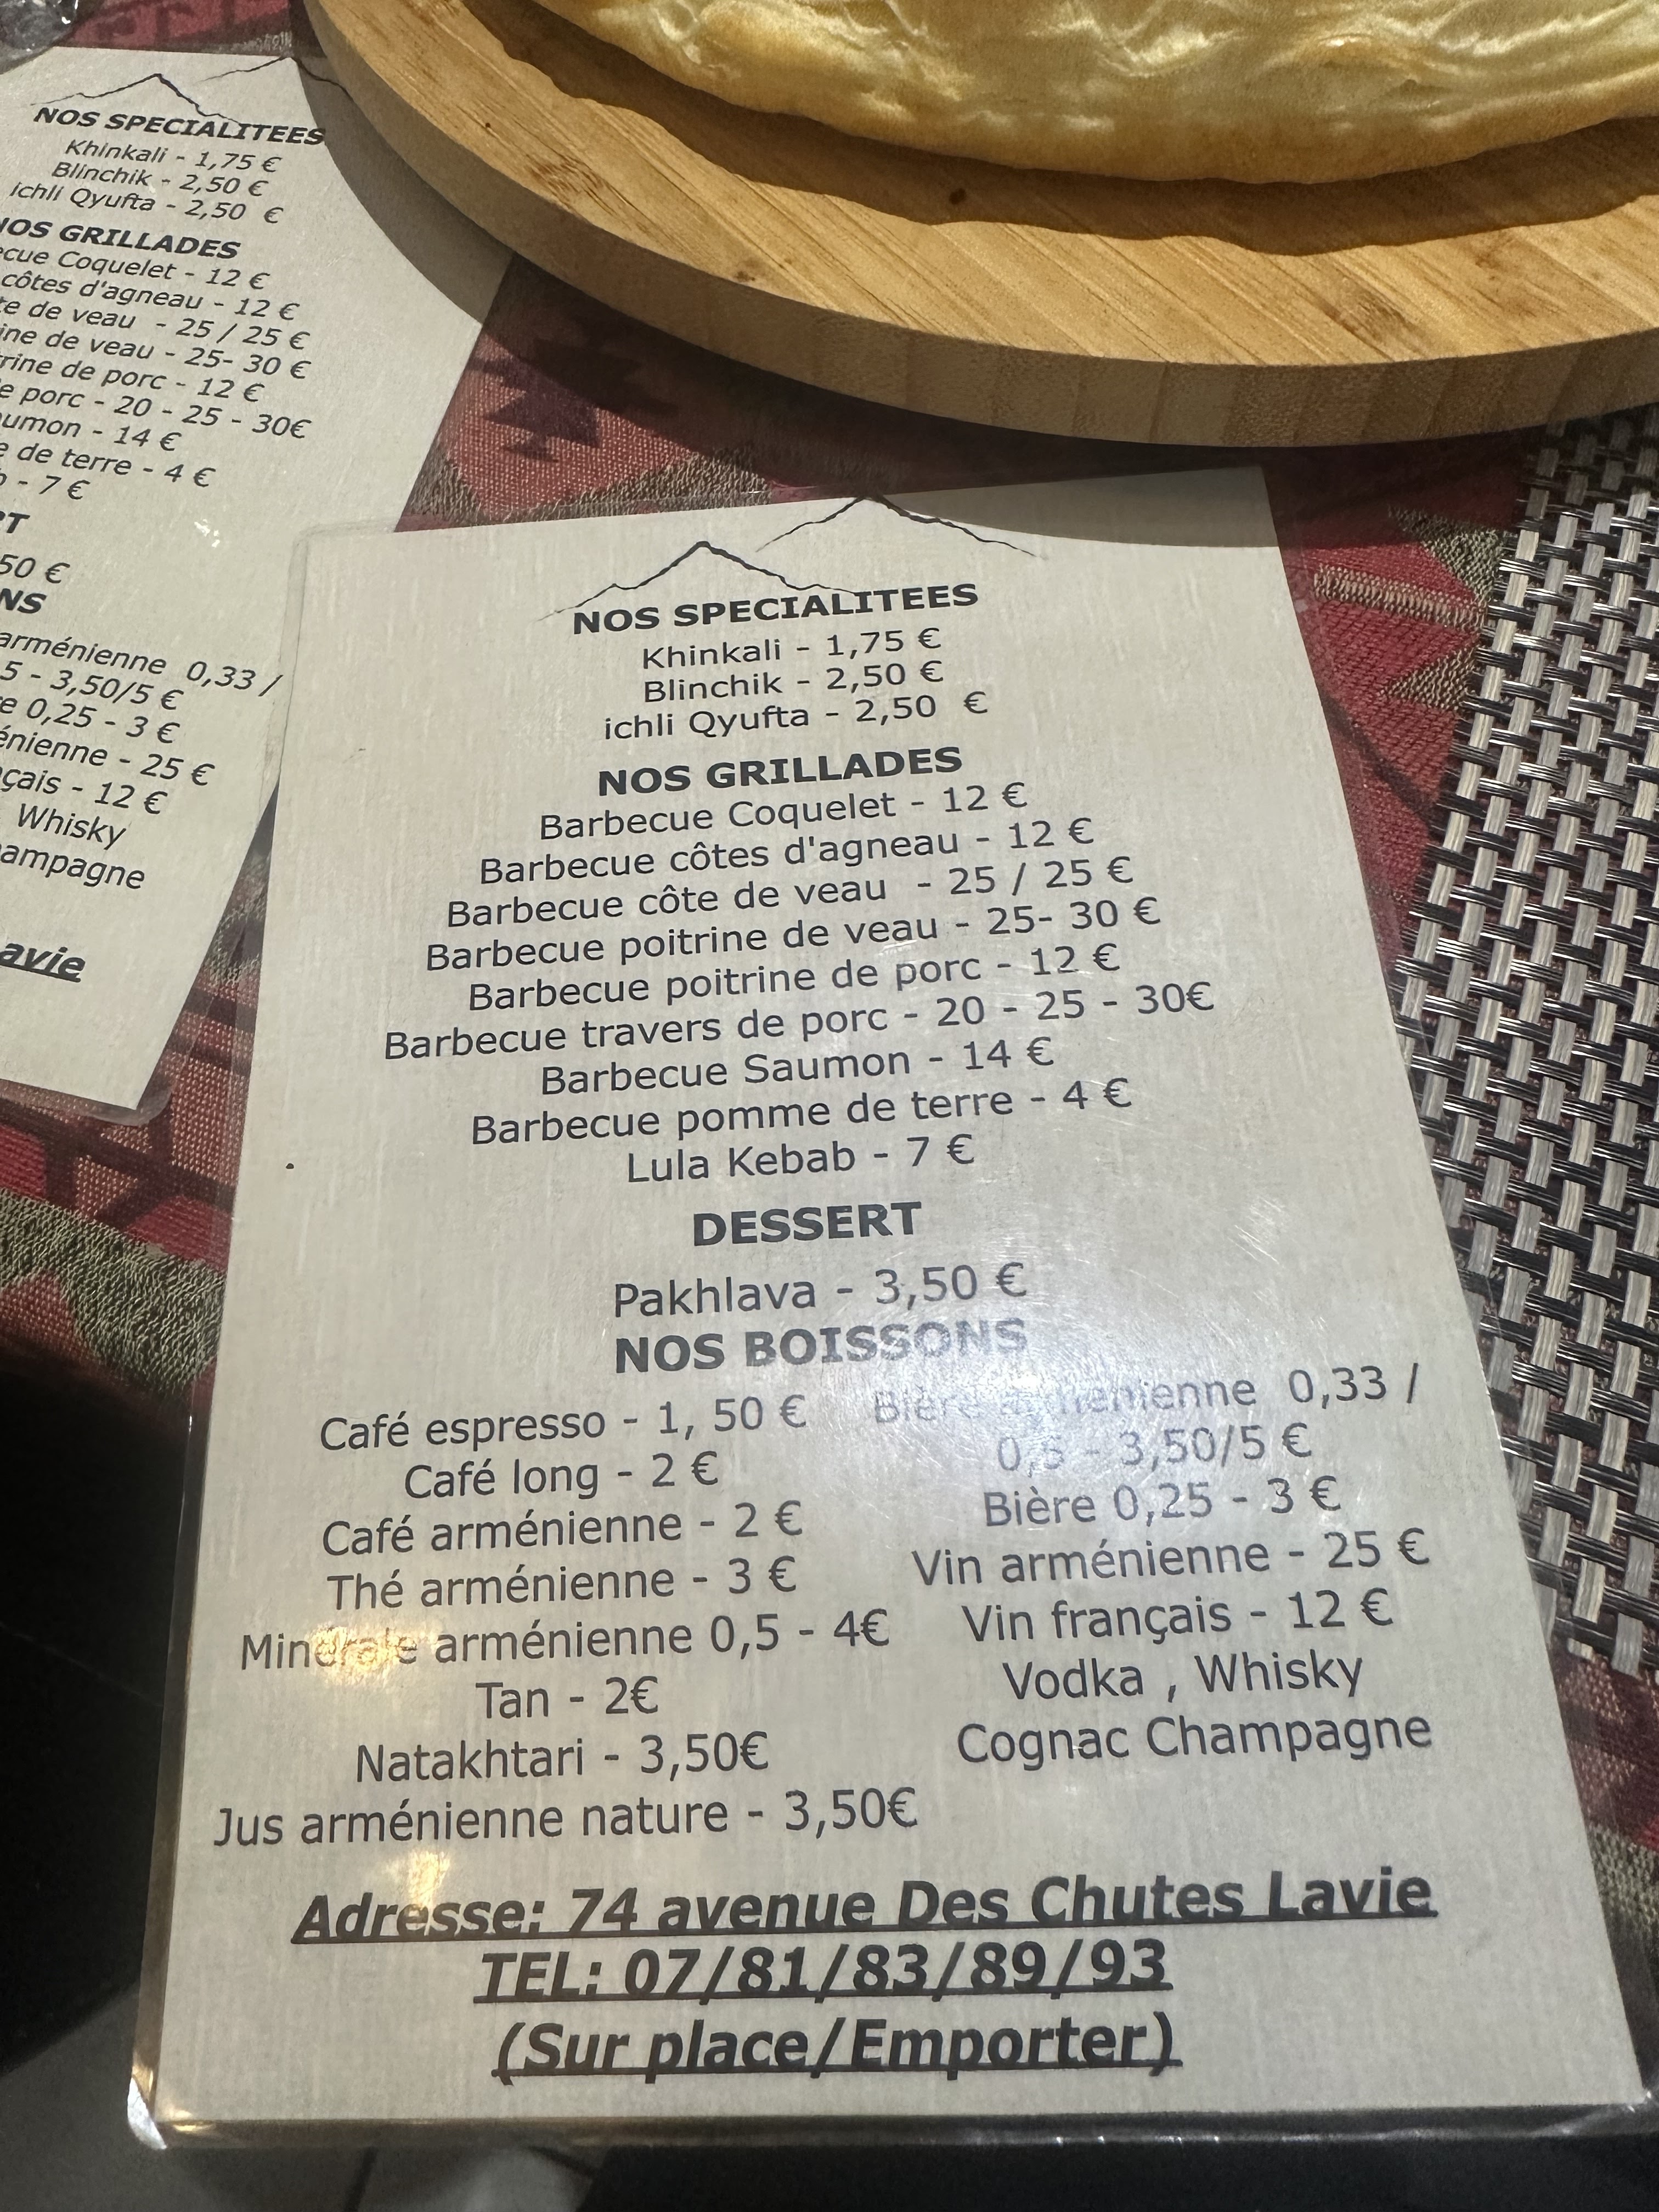 NOS SPECIALITEES
Khinkali - 1,75 €
Blinchik - 2,50 €
ichli Qyufta - 2,50 €
NOS GRILLADES
cue Coquelet - 12 €
côtes d'agneau - 12 €
de veau - 25 / 25 €
ine de veau - 25- 30 €
rine de porc - 12 €
porc - 20 - 25 - 30€
umon - 14 €
de terre - 4 €
- 7 €
RT
50 €
NS
arménienne 0,33 /
5 - 3,50/5 €
0,25 - 3 €
énienne - 25 €
çais - 12 €
Whisky
ampagne
avie
NOS SPECIALITEES
Khinkali - 1,75 €
Blinchik - 2,50 €
ichli Qyufta - 2,50 €
NOS GRILLADES
Barbecue Coquelet - 12 €
Barbecue côtes d'agneau - 12 €
Barbecue côte de veau - 25 / 25 €
Barbecue poitrine de veau - 25- 30 €
Barbecue poitrine de porc - 12 €
Barbecue travers de porc - 20 - 25 - 30€
Barbecue Saumon - 14 €
Barbecue pomme de terre - 4 €
Lula Kebab - 7 €
DESSERT
Pakhlava - 3,50 €
NOS BOISSONS
Café espresso - 1, 50 €
Café long - 2 €
Café arménienne - 2 €
Thé arménienne - 3 €
Minérale arménienne 0,5 - 4€
Tan - 2€
Natakhtari - 3,50€
Jus arménienne nature - 3,50€
Bière arménienne 0,33 /
0,5 - 3,50/5 €
Bière 0,25 - 3 €
Vin arménienne - 25 €
Vin français - 12 €
Vodka , Whisky
Cognac Champagne
Adresse: 74 avenue Des Chutes Lavie
TEL: 07/81/83/89/93
(Sur place/Emporter)